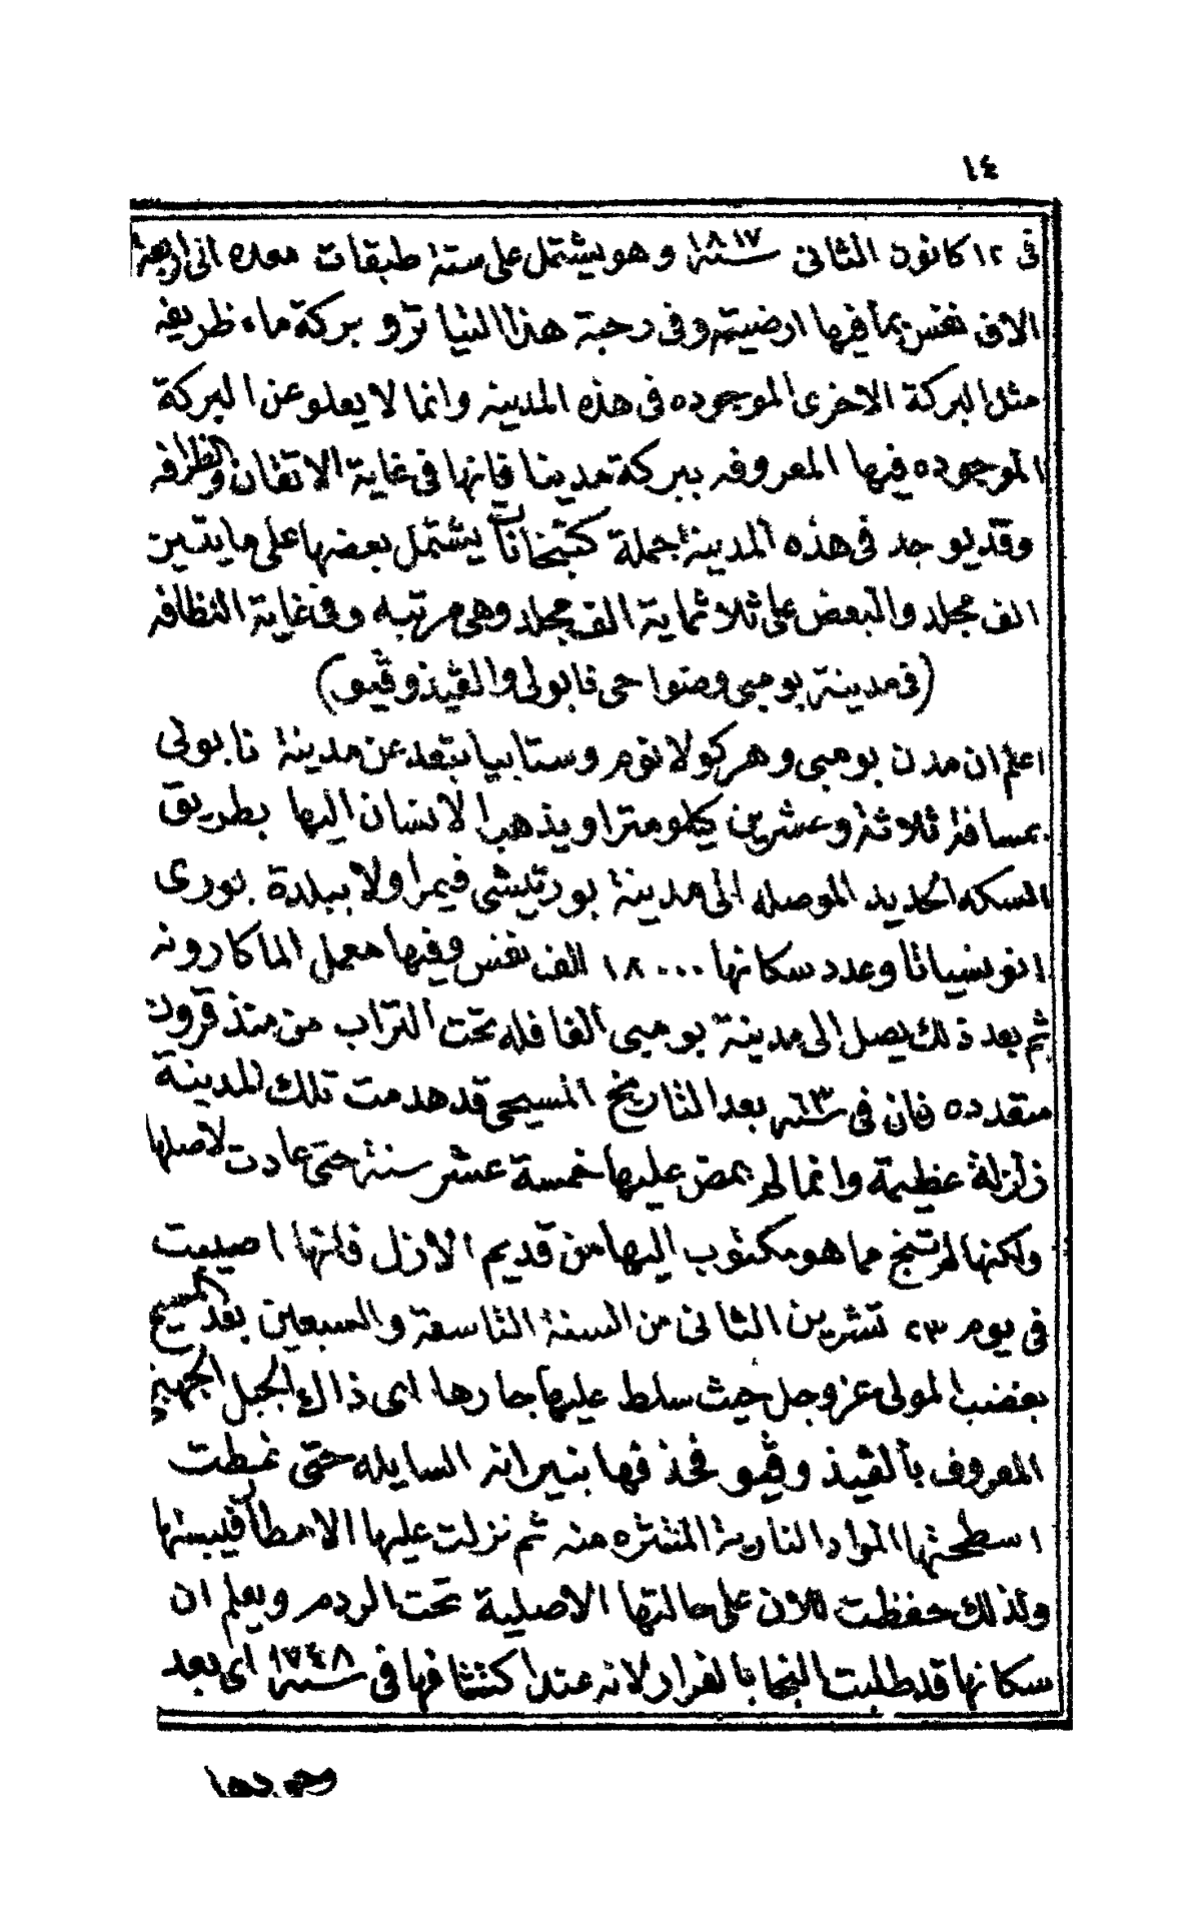 ١٤
فى ١٢ كانون الثانى سنة ١٨١٧ وهو يشتمل على ستة طبقات معده الى اربعة
الاف نفس بما فيها ارضيته وفى رحبة هذا التياترو بركة ماء ظريفه
مثل البركة الاخرى الموجوده فى هذه المدينه وانما لا يعلو عن البركة
الموجوده فيها المعروفه ببركة مدينا فانها فى غاية الاتقان والظرافه
وقد يوجد فى هذه المدينة جملة كتبخانات يشتمل بعضها على مايتين
الف مجلد والبعض على ثلاثماية الف مجلد وهى مرتبه وفى غاية النظافه
(فى مدينة بومبى وضواحى نابولى والڤيذوڤيو)
اعلم ان مدن بومبى وهركولانوم وستابيا بتعد عن مدينة نابولى
بمسافة ثلاثة وعشرين كيلومترا ويذهب الانسان اليها بطريق
السكه الحديد الموصله الى مدينة بورتيشى فيمر اولا ببلدة بورى
انونسياتا وعدد سكانها ١٨٠٠٠ الف نفس وفيها معمل الماكارونه
ثم بعد ذلك يصل الى مدينة بومبى القافله تحت التراب من منذ قرون
متعدده فان فى سنة ٦٣ بعد التاريخ المسيحى قد هدمت تلك المدينة
زلزلة عظيمة وانما لم يمض عليها خمسة عشر سنة حتى عادت لاصلها
ولكنها لم تنج مما هو مكتوب اليها من قديم الازل فانها اصيبت
فى يوم ٢٣ تشرين الثانى من السنة التاسعة والسبعين بعد المسيح
بغضب المولى عز وجل حيث سلط عليها جارها اى ذاك الجبل الجهنمى
المعروف بالڤيذوڤيو فحذفها بنيرانه السايله حتى غطت
اسطحتها المواد النارية المنتثره منه ثم نزلت عليها الامطار فيبستها
ولذلك حفظت للان على حالتها الاصلية تحت الردم ويعلم ان
سكانها قد طلبت النجا بالفرار لانه عند اكتشافها فى سنة ١٧٤٨ اى بعد
وجودها